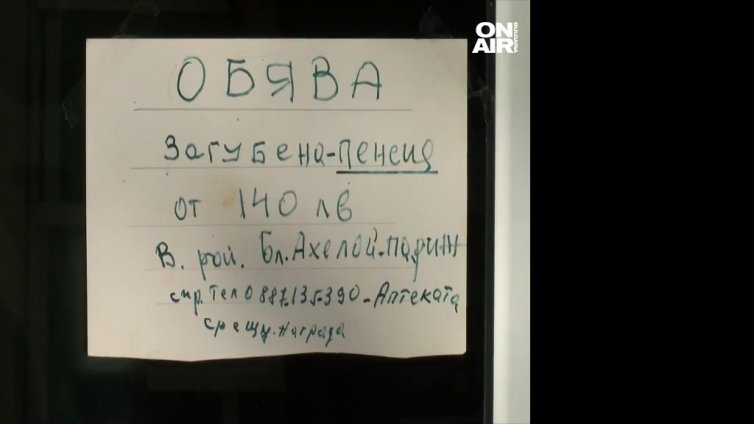 ON
AIR
BULGARIA
ОБЯВА
Загубена-пенсия
от 140 лв
В. рай. Бл. Ахелой-Париж
спр. Тел 0887.135.390-Аптеката
срещу.награда